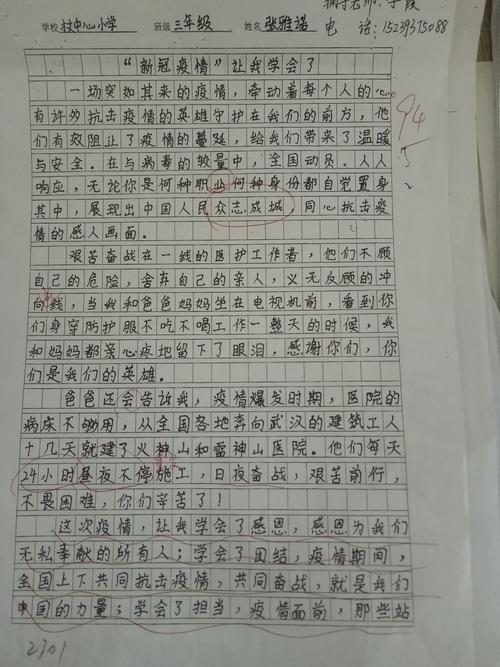 辅导老师:李霞
学校 枝中心小学 班级 三年级 姓名 张雅诺 电 话:15239315088
“新冠疫情”让我学会了
一场突如其来的疫情,牵动着每个人的心
有许多抗击疫情的英雄守护在我们的前方,他
们有效阻止了疫情的蔓延,给我们带来了温暖
与安全。在与病毒的较量中,全国动员、人人
响应,无论你是何种职业何种身份都自觉置身
其中,展现出中国人民众志成城,同心抗击疫
情的感人画面。
艰苦奋战在一线的医护工作者,他们不顾
自己的危险,舍弃自己的亲人,义无反顾的冲
向线,当我和爸爸妈妈坐在电视机前,看到你
们身穿防护服不吃不喝工作一整天的时候,我
和妈妈都亲心疼地留下了眼泪,感谢你们,你
们是我们的英雄。
爸爸还会告诉我,疫情爆发时期,医院的
病床不够用,从全国各地奔向武汉的建筑工人
十几天就建了火神山和雷神山医院。他们每天
24小时昼夜不停施工,日夜奋战,艰苦前行,
不畏困难,你们辛苦了!
这次疫情,让我学会了感恩,感恩为我们
无私奉献的所有人;学会了团结,疫情期间,
全国上下共同抗击疫情,共同奋战,就是我们
中国的力量;学会了担当,疫情面前,那些站
94
2301